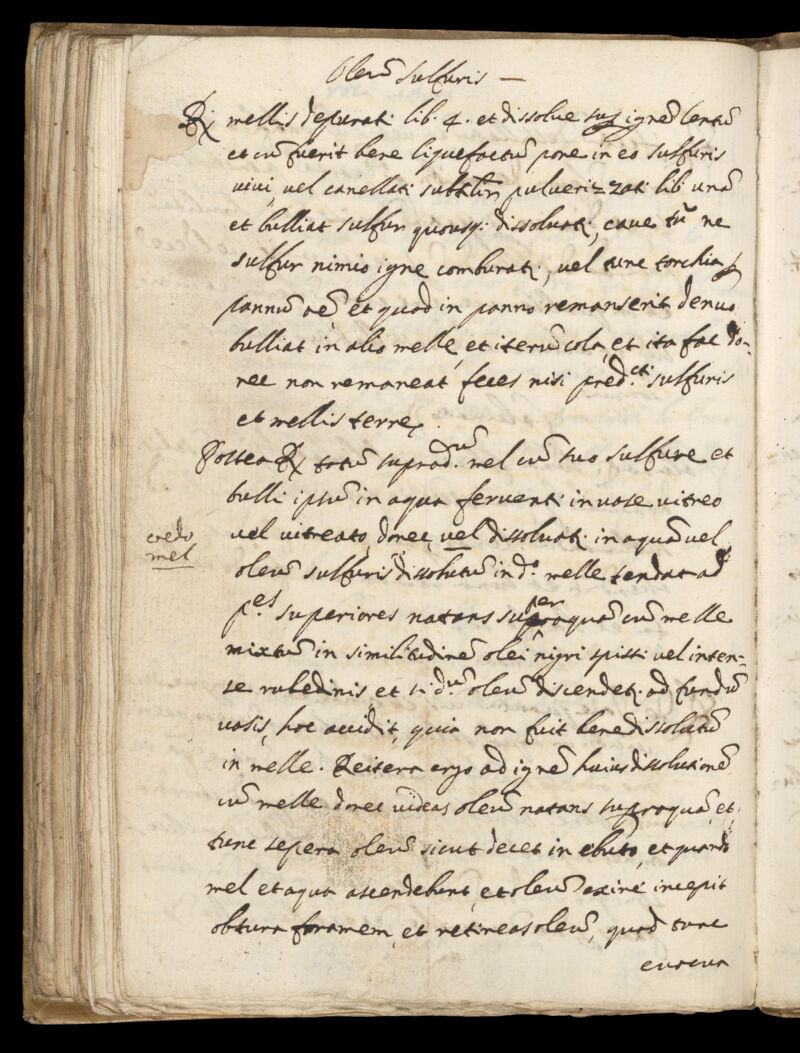 Oleū sulfuris —
℞ mellis depurati lib. 4. et dissolue sup ignē lentū
et cū fuerit bene liquefactū pone in eo sulfuris
uiui uel canellati pulverizzati lib. unā
et bulliat sulfur quousq; dissoluat;, caue tn̄ ne
sulfur nimio igne comburat;, uel tunc p
pannū et quod in panno remanserit denuo
bulliat in alio melle, et iterū cola, et ita fac do=
nec non remaneāt feces nisi pred.cti sulfuris
et mellis terre.
Postea ℞ totū suprad.ū mel cū suo sulfure et
bulli ipsū in aqua feruenti in uase uitreo
uel uitreato, donec uel dissoluat; in aquā uel
credo
mel
oleū sulfuris dissolutū in d.o melle tendat ad
p.es superiores natans super aquā cū melle
mixtū in similitudinē olei nigri spissi uel inten=
se rubedinis et si d.ū oleū discendet; ad fundū
uasis, hoc accidit, quia non fuit bene dissolutū
in melle. Reitera ergo ad ignē huius dissolutionē
cū melle donec uideas oleū natans sup aquā, et
tunc separa oleū sicut decet in, et quando
mel et aqua ascendebunt, et oleū exire incepit
obtura foramem, et retineas oleū, quod tunc